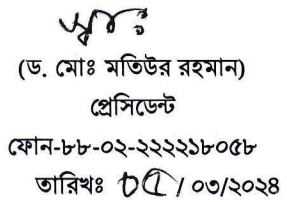 স্বাঃ
(ড. মোঃ মতিউর রহমান)
প্রেসিডেন্ট
ফোন-৮৮-০২-২২২২১৮০৫৮
তারিখঃ /০৩/২০২৪